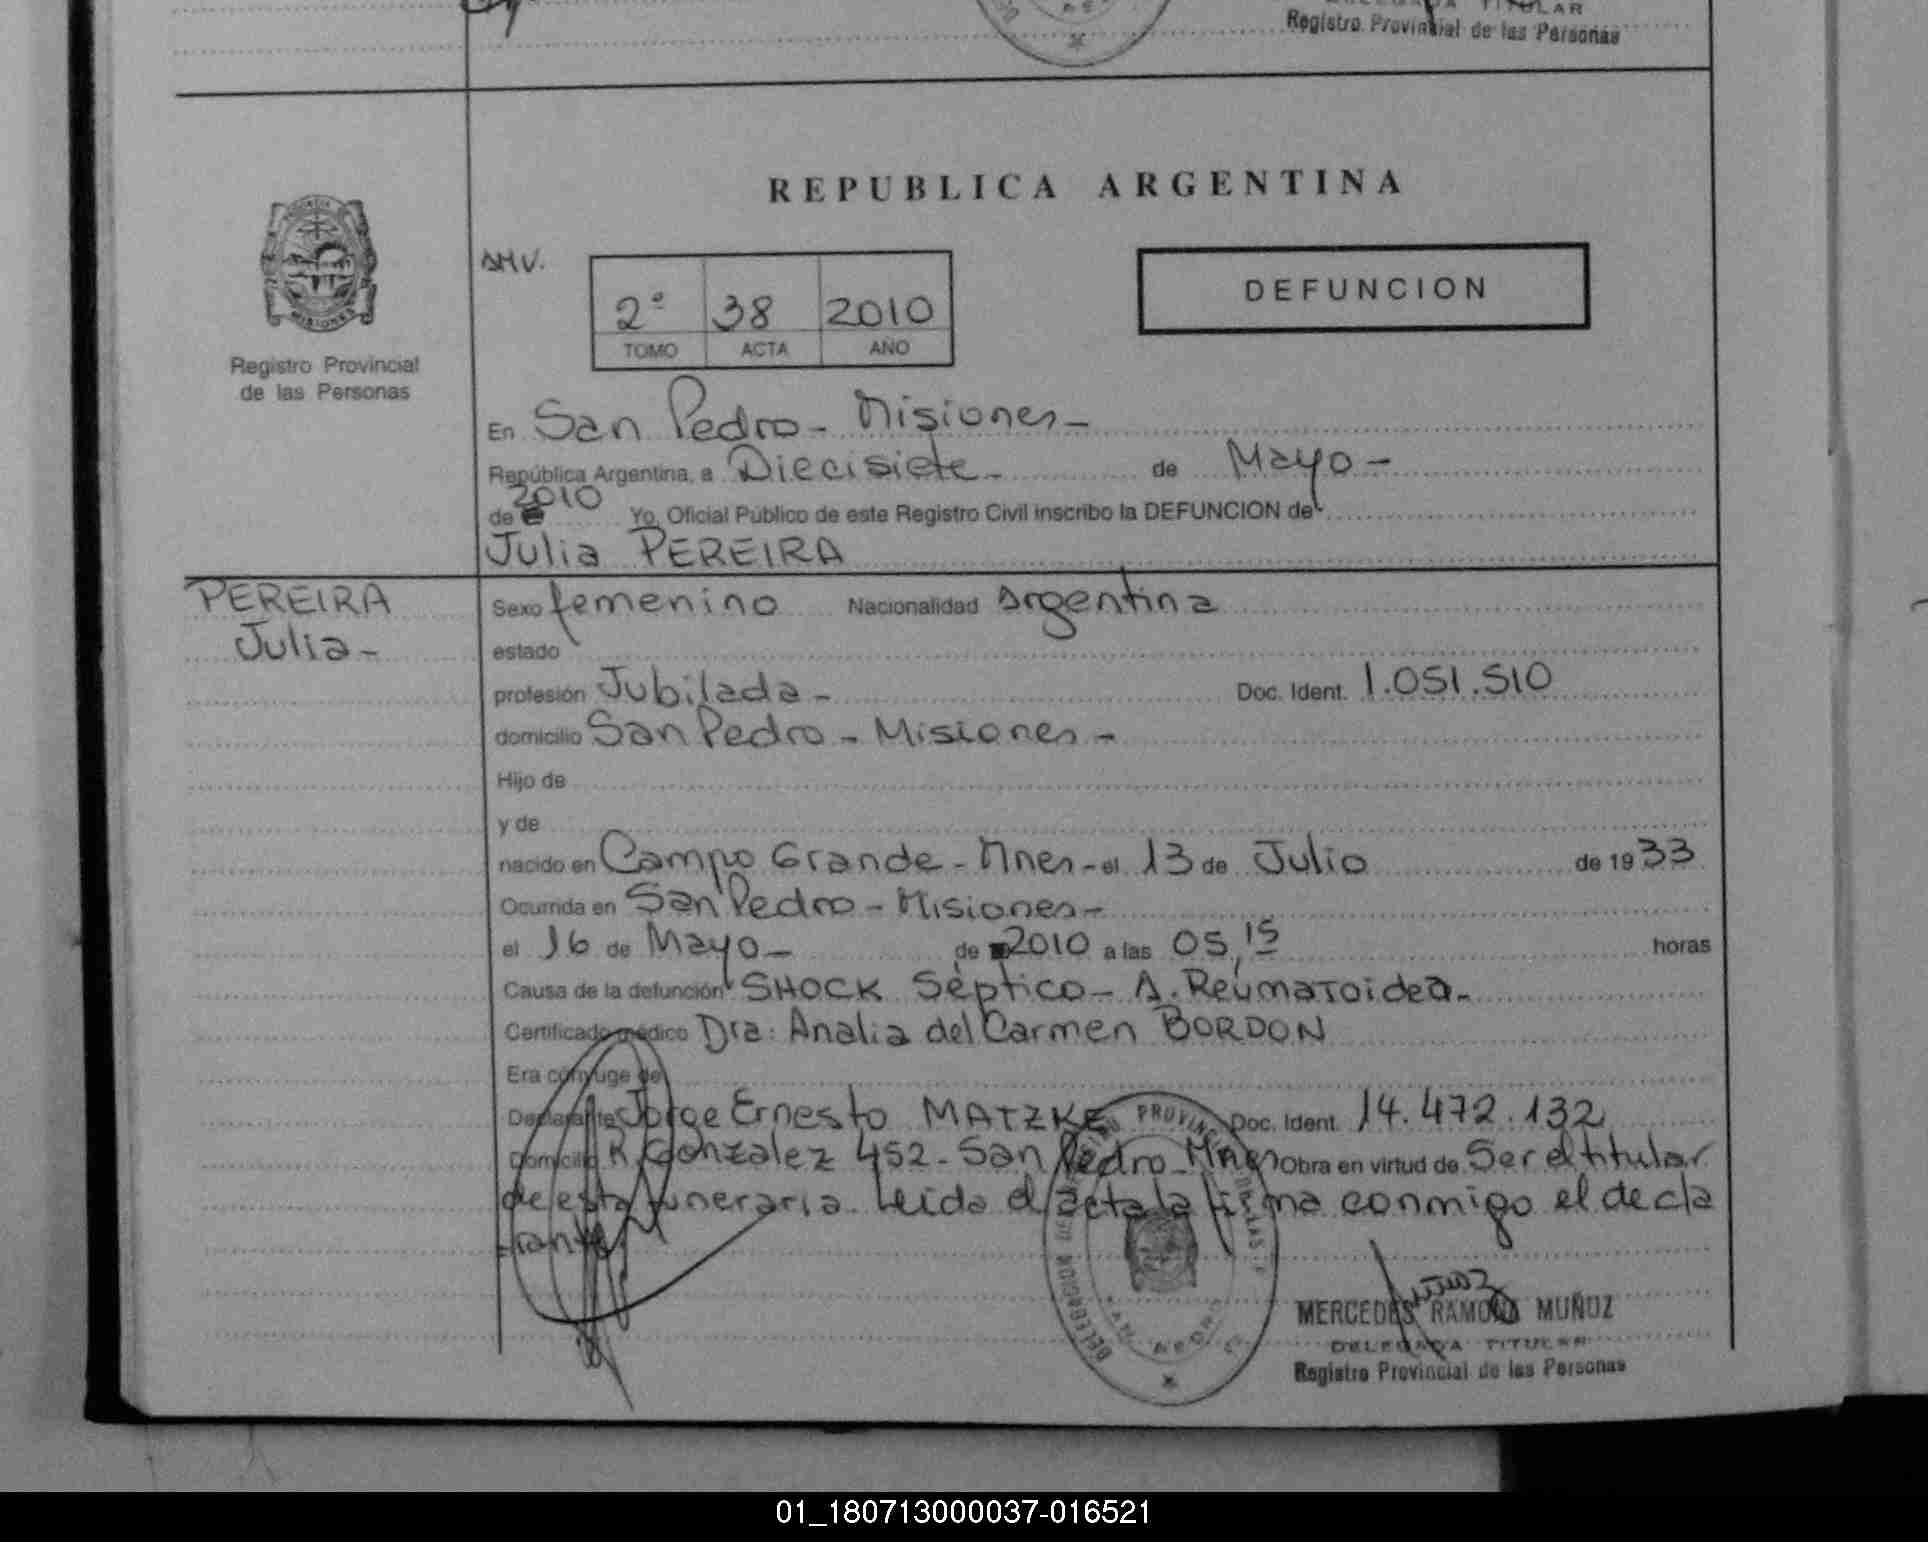 DELEGADA TITULAR
Registro Provincial de las Personas
REPUBLICA ARGENTINA
AMV.
2° 38 2010
TOMO ACTA AÑO
DEFUNCION
MISIONES
Registro Provincial
de las Personas
En San Pedro - Misiones -
República Argentina, a Diecisiete - de Mayo -
de 2010 Yo, Oficial Público de este Registro Civil inscribo la DEFUNCION de
Julia PEREIRA
PEREIRA
Julia -
Sexo femenino Nacionalidad Argentina
estado
profesión Jubilada - Doc. Ident. 1.051.510
domicilio San Pedro - Misiones -
Hijo de
y de
nacido en Campo Grande - Mnes - el 13 de Julio de 1933
Ocurrida en San Pedro - Misiones -
el 16 de Mayo - de 2010 a las 05,15 horas
Causa de la defunción SHOCK Séptico - A. Reumatoidea -
Certificado médico Dra: Analia del Carmen BORDON
Era cónyuge de
Declarante Jorge Ernesto MATZKE Doc. Ident. 14.472.132
Domicilio R. Gonzalez 452 - San Pedro - Mnes Obra en virtud de Ser el titular
de esta funeraria. Leída el acta la firma conmigo el decla
rante
MERCEDES RAMONA MUÑOZ
DELEGADA TITULAR
Registro Provincial de las Personas
01_180713000037-016521